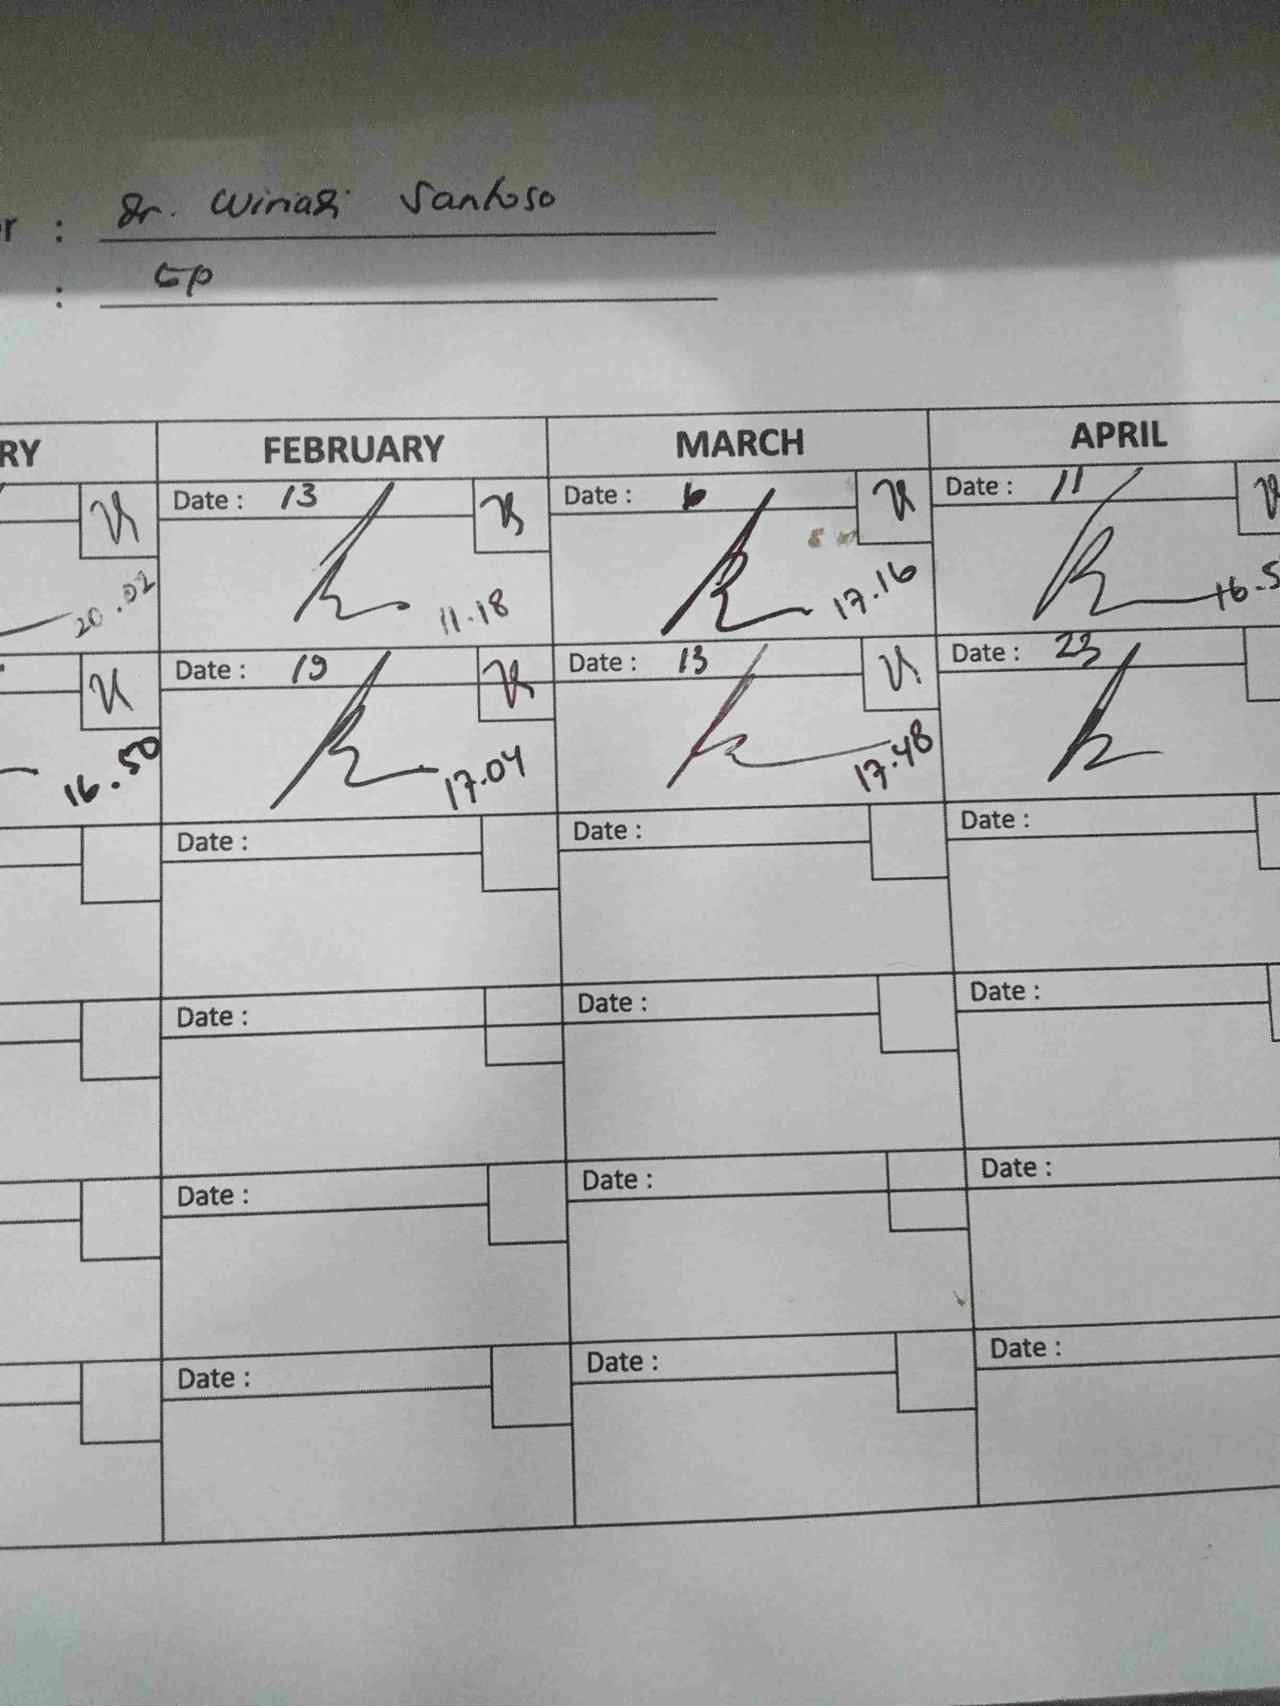 r : Dr. Winasi Santoso
: GP
RY FEBRUARY MARCH APRIL
Date : 13 Date : 6 Date : 11
20.02 11.18 17.16 16.5
Date : 19 Date : 13 Date : 23
16.50 17.04 17.48
Date : Date : Date :
Date : Date : Date :
Date : Date : Date :
Date : Date : Date :